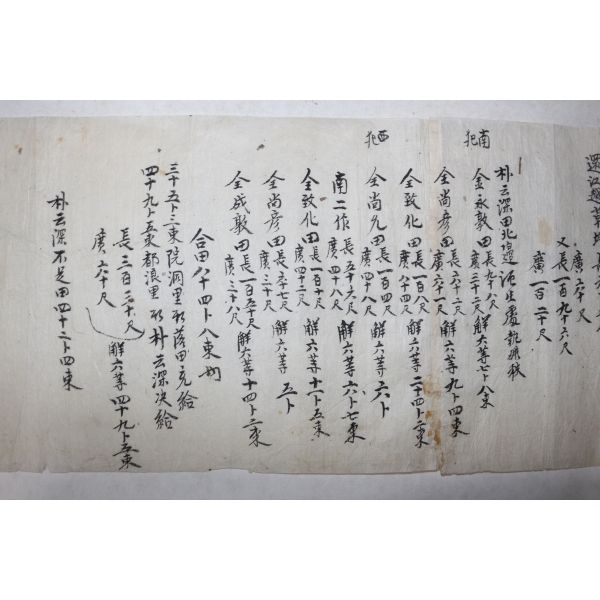 廣六十尺
又長一百九十六尺
廣一百二十尺
朴云深田北邊
南犯
金永敦田 長九十八尺 廣三十二尺 解六等七卜八束
全尚彦田 長六十二尺 廣六十一尺 解六等九卜四束
全致化田 長一百八尺 廣九十四尺 解六等二十四卜二束
西犯
全尚允田 長一百四尺 廣四十八尺 解六等六卜
南二作 長五十六尺 廣四十八尺 解六等六卜七束
全致化田 長一百十尺 廣四十二尺 解六等十一卜五束
全尚彦田 長六十七尺 廣三十尺 解六等 五卜
全成敦田 長一百五十尺 廣三十八尺 解六等十四卜二束
合田八十四卜八束內
三十五卜三束院洞里所落田充給
四十九卜五束都浪里所朴云深決給
長三百三十尺
廣六十尺
解六等四十九卜五束
朴云深不足田四十二卜四束